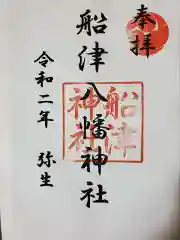 奉拝
船津八幡神社
船津
神社
令和二年 弥生